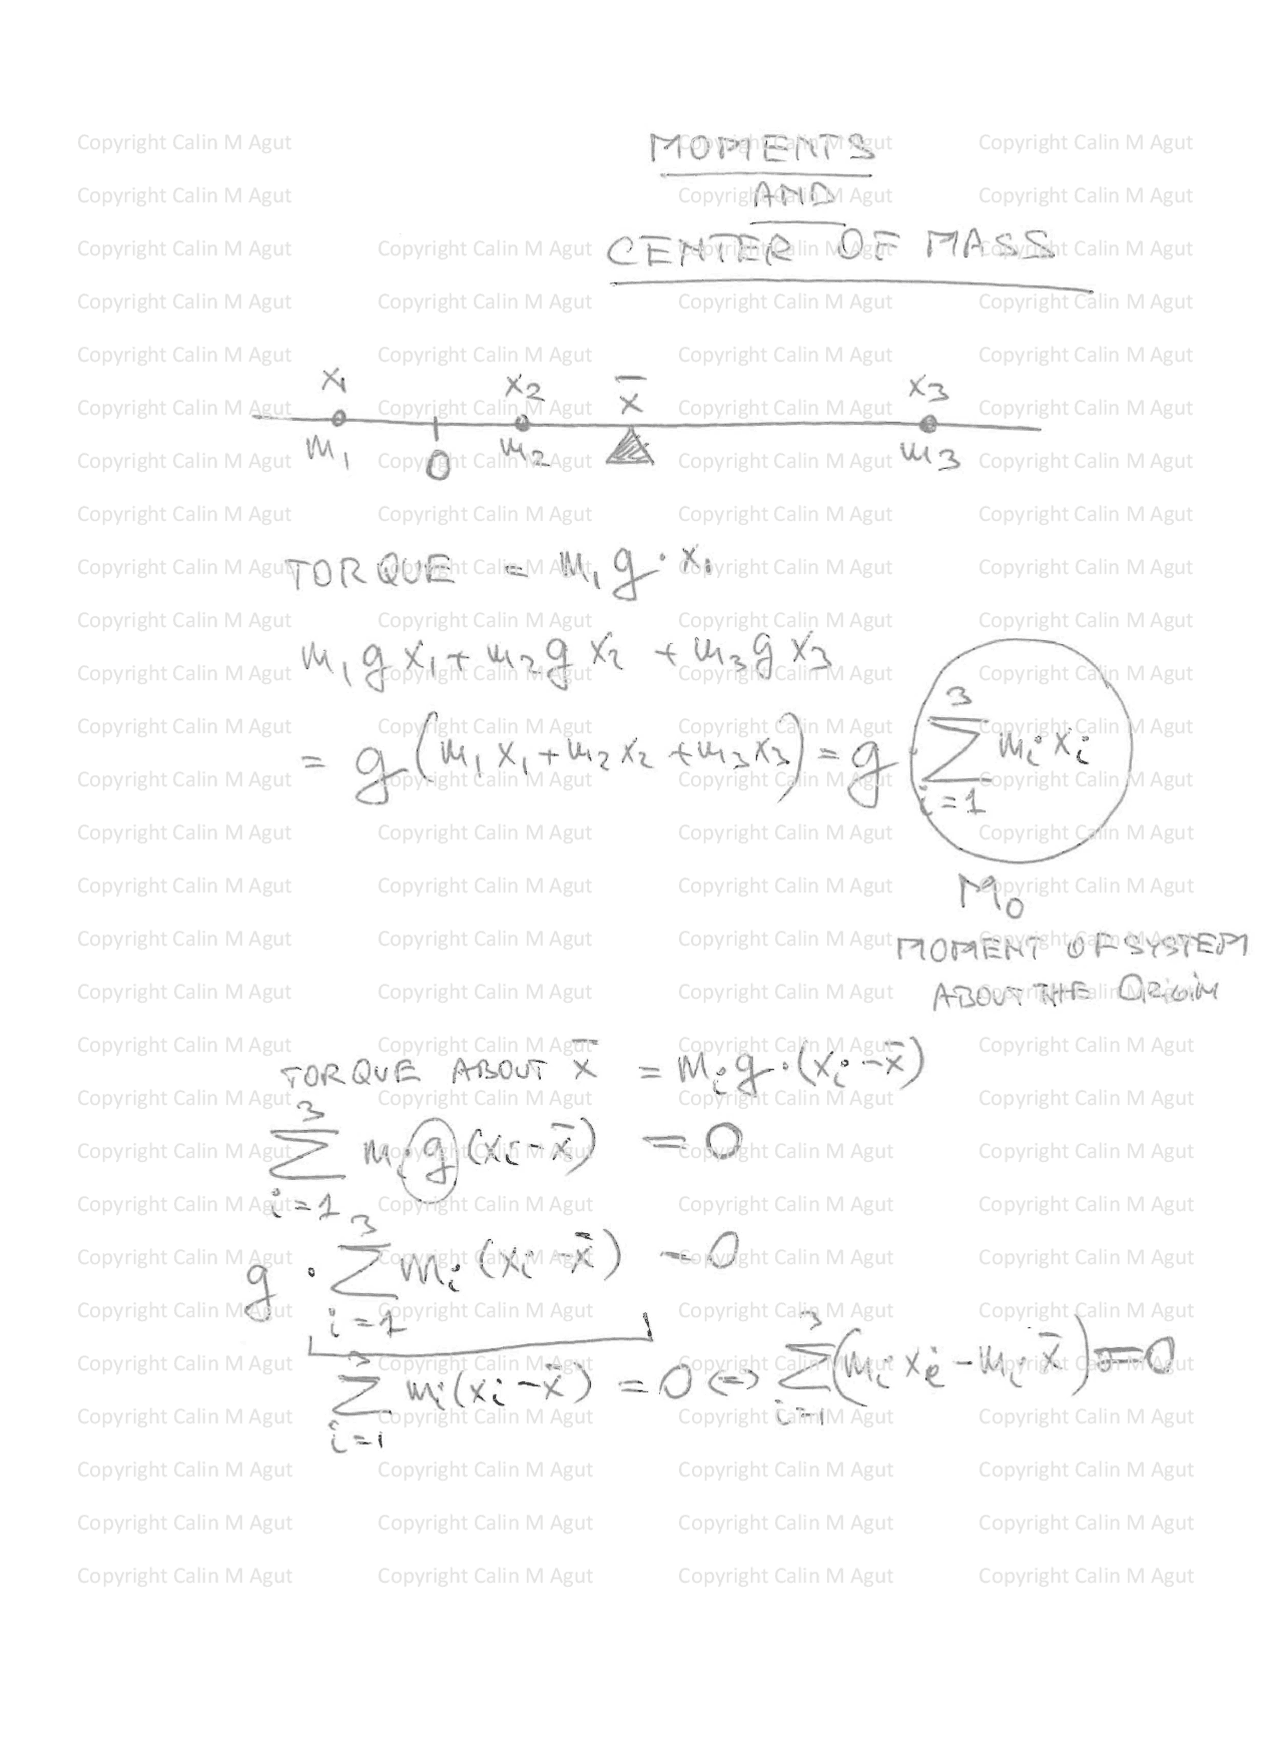 MOMENTS
AND
CENTER OF MASS
x₁ x₂ x̄ x₃
m₁ 0 m₂ m₃
TORQUE = m₁g · x₁
m₁gx₁ + m₂gx₂ + m₃gx₃
= g(m₁x₁ + m₂x₂ + m₃x₃) = g ∑_{i=1}^{3} mᵢxᵢ
M₀
MOMENT OF SYSTEM
ABOUT THE ORIGIN
TORQUE ABOUT x̄ = mᵢg·(xᵢ-x̄)
∑_{i=1}^{3} mᵢg(xᵢ-x̄) = 0
g · ∑_{i=1}^{3} mᵢ(xᵢ-x̄) = 0
∑_{i=1}^{3} mᵢ(xᵢ-x̄) = 0 ⇔ ∑_{i=1}^{3} (mᵢxᵢ - mᵢx̄) = 0
Copyright Calin M Agut